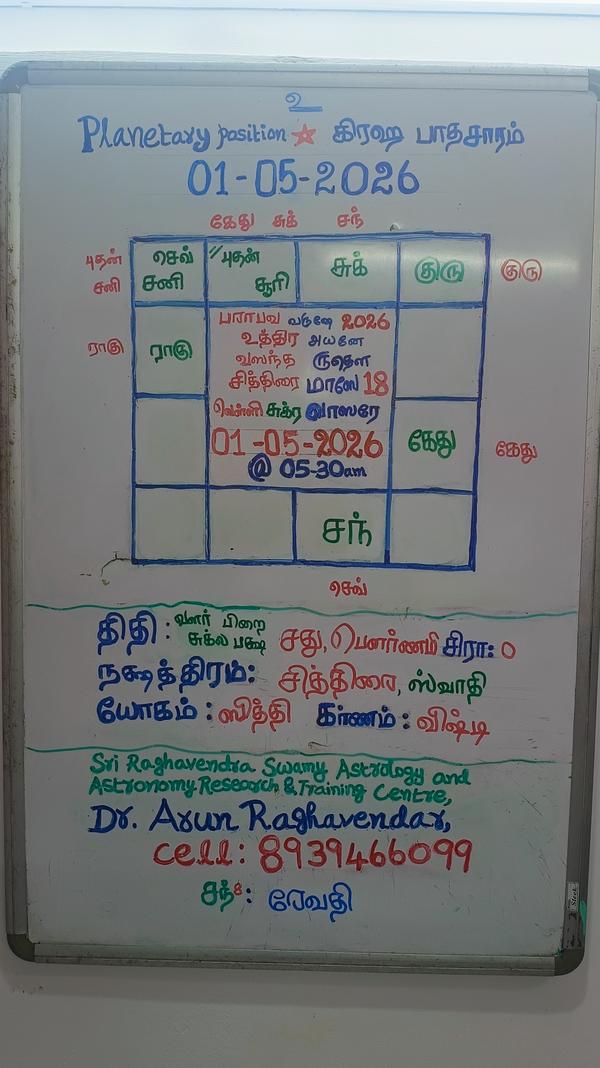 உ
Planetary position கிரஹ பாதசாரம்
01-05-2026
கேது சுக் சந்
புதன் சனி
செவ் சனி
"புதன் சூரி
சுக்
குரு
குரு
ராகு
ராகு
பராபவ வருஷே 2026
உத்திர அயனே
வஸந்த ருதௌ
சித்திரை மாஸே 18
வெள்ளி சுக்ர வாஸரே
01-05-2026
@ 05-30am
கேது
கேது
சந்
செவ்
திதி : வளர் பிறை சுக்ல பக்ஷ சது, பௌர்ணமி சிரா: 0
நக்ஷத்திரம்: சித்திரை, ஸ்வாதி
யோகம் : ஸித்தி கர்ணம் : விஷ்டி
Sri Raghavendra Swamy Astrology and
Astronomy Research & Training Centre,
Dr. Arun Raghavendar,
cell: 8939466099
சந்8: ரேவதி